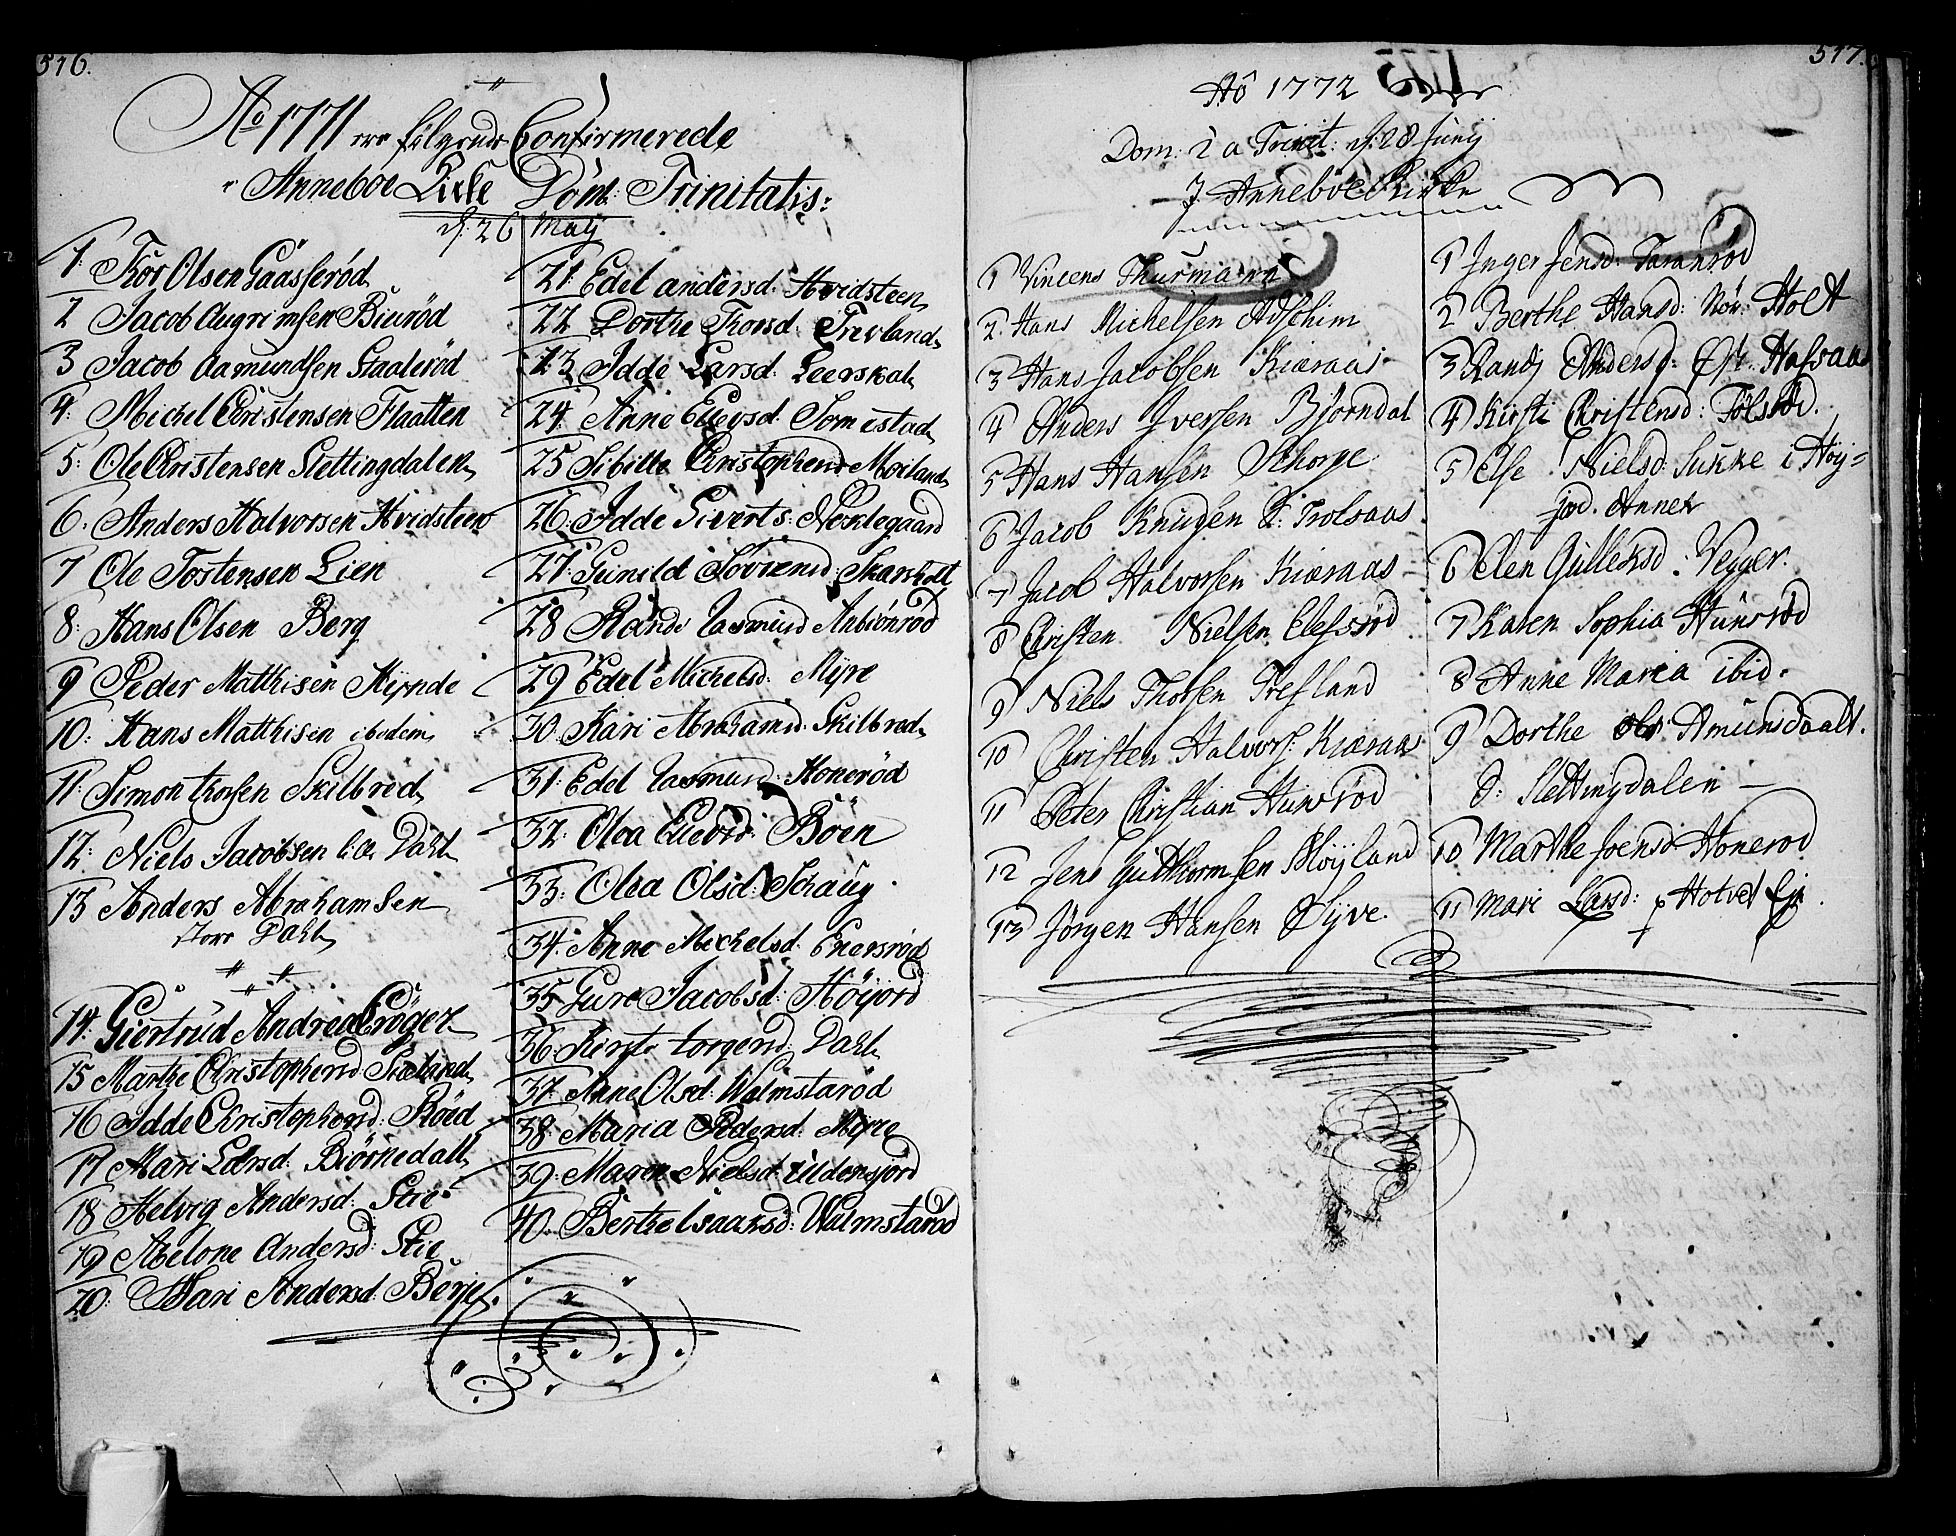 516.
Ao 1771 ere følgende Confirmerede
i Anneboe Kirke Dom: Trinitatis:
d. 26 Maij
1. Thor Olsen Gaasserød
2 Jacob Augrimsen Biurød
3 Jacob Aamundsen Staalerød
4. Michel Christensen Flaatten
5. Ole Christensen Slettingdalen
6. Anders Halvorsen Hvidsteen
7 Ole Tostensen Lien
8. Hans Olsen Berg
9 Peder Matthisen Hynde
10. Hans Matthisen ibidem
11. Simon thorsen Skilbred
12. Niels Jacobsen lille Dahl
13 Anders Abrahamsen
store Dahl
14. Giertrud Andrea Crøger
15 Marthe Christophersd
16 Idde Christophersd: Røed
17 Mari Larsd: Biørnedall
18 Helvig Andersd: Stie
19 Abelone Andersd: Stie
20. Kari Andersd: Berje
21. Edel andersd: Hvidsteen
22 Dorthe Thorsd: Trevland
23 Idde Larsd: Leerskal
24. Anne Ellevsd: Somestad
25 Sibille Christophersd Moiland
26. Idde Siverts: Nordegaard
27. Gunild Søvrensd: Skarsholt
28 Rande Rasmusd Anbiønrød
29 Edel Michelsd: Myre
30. Kari Abrahamsd: Skilbred
31. Edel Rasmusd: Honerød
32. Olea Ellevsd: Bøen
33. Olea Olsd: Schaug
34. Anne Michelsd: Enersrød
35 Gure Jacobsd: Høyjord
36. Kirsti torgersd: Dahl
37. Anne Olsd: Walmstarød
38. Maria Pedersd: Myre
39. Maren Nielsd: Uldensjord
40. Berthe Isaacsd: Walmstarød
517.
Aō 1772
Dom: 2 a Trinit: d. 28 Junij
I Anneboe Kirke
1 Vincens Thurmann
2. Hans Michelsen Adschim
3 Hans Jacobsen Kiæraas
4 Anders Iversen Bjørndal
5 Hans Hansen Schorge
6 Jacob Knudsen L: Trolsaas
7 Jacob Halvorsen Kiæraas
8 Christen Nielsen Elefsrød
9 Niels Thorsen Trefland
10 Christen Halvors: Kiæraas
11 Peter Christian Hunsrød
12 Jens Gutthormsen Møyland
13 Jørgen Hansen Dyve
1 Inger Jensd: Taranrød
2 Berthe Hansd: Nør: Holt
3 Randj Andersd: Øst: Hafsaas
4 Kirsti Christensd: Tølsrød.
5 Else Nielsd: Sukke i Høy=
jord. Annex
6 Elen Gulleksd: Vegger.
7 Karen Sophia Hunsrød
8 Anne Maria ibid.
9 Dorthe Amundsdaatt.
Slettingdalen
10 Marthe Joensd Honerød
11 Mari Larsd: Holvet Ejr